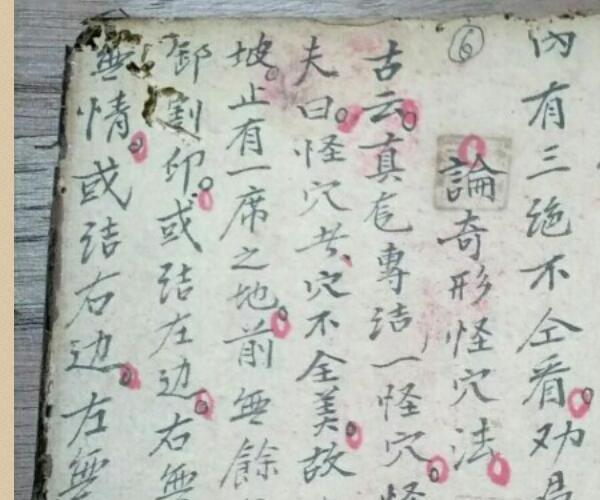 內有三絶不仝看。劝
⑥
論奇形怪穴法。
古云。真龍專結一怪穴。怪
夫曰。怪穴者穴不全美。故
坡。止有一席之地。前無餘
卸割卯。或结左边。右無
無情。或结右边。左無